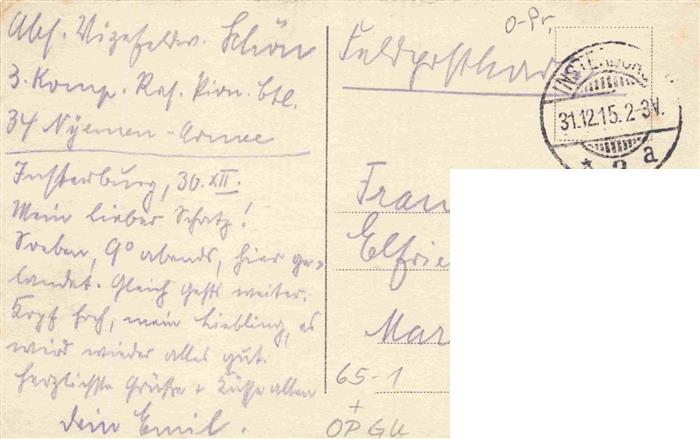 Abs. Vizefeldw. Schön
3. Komp. Res. Pion. Btl.
34 Njemen-Armee
Insterburg, 30.XII.
Mein lieber Schatz!
Soeben, 9⁰ abends, hier ge-
landet. Gleich gehts weiter.
Kopf hoch, mein Liebling, es
wird wieder alles gut.
Herzlichste Grüße + Küsse allen
Dein Emil.
O-Pr.
Feldpostkar
INSTERBUR
31.12.15. 2-3V.
* 2 a
Frau
Elfrie
Mar
65-1
+
OP GU